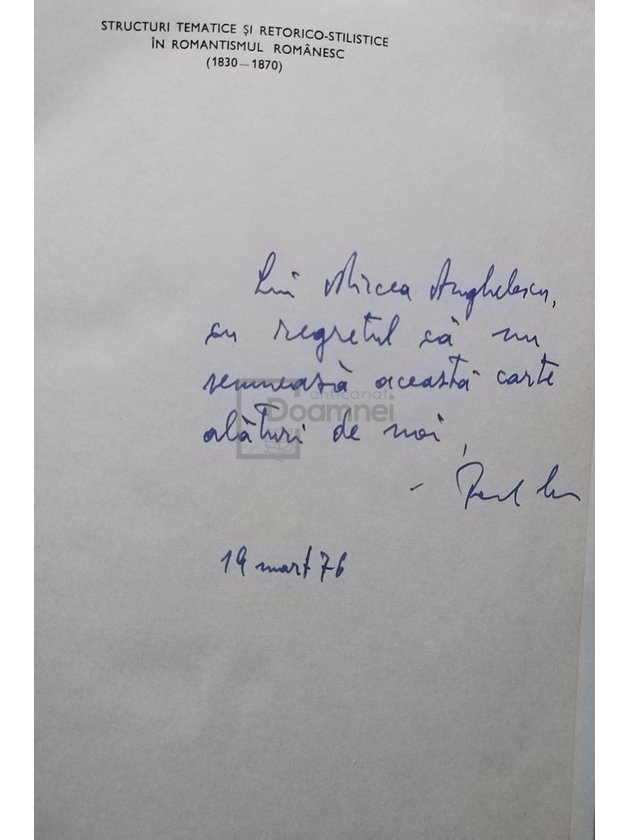 STRUCTURI TEMATICE ȘI RETORICO-STILISTICE
ÎN ROMANTISMUL ROMÂNESC
(1830—1870)
Lui Mircea Anghelescu,
cu regretul că nu
semnează această carte
anticariat
Doamnei
alături de noi,
19 mart 76